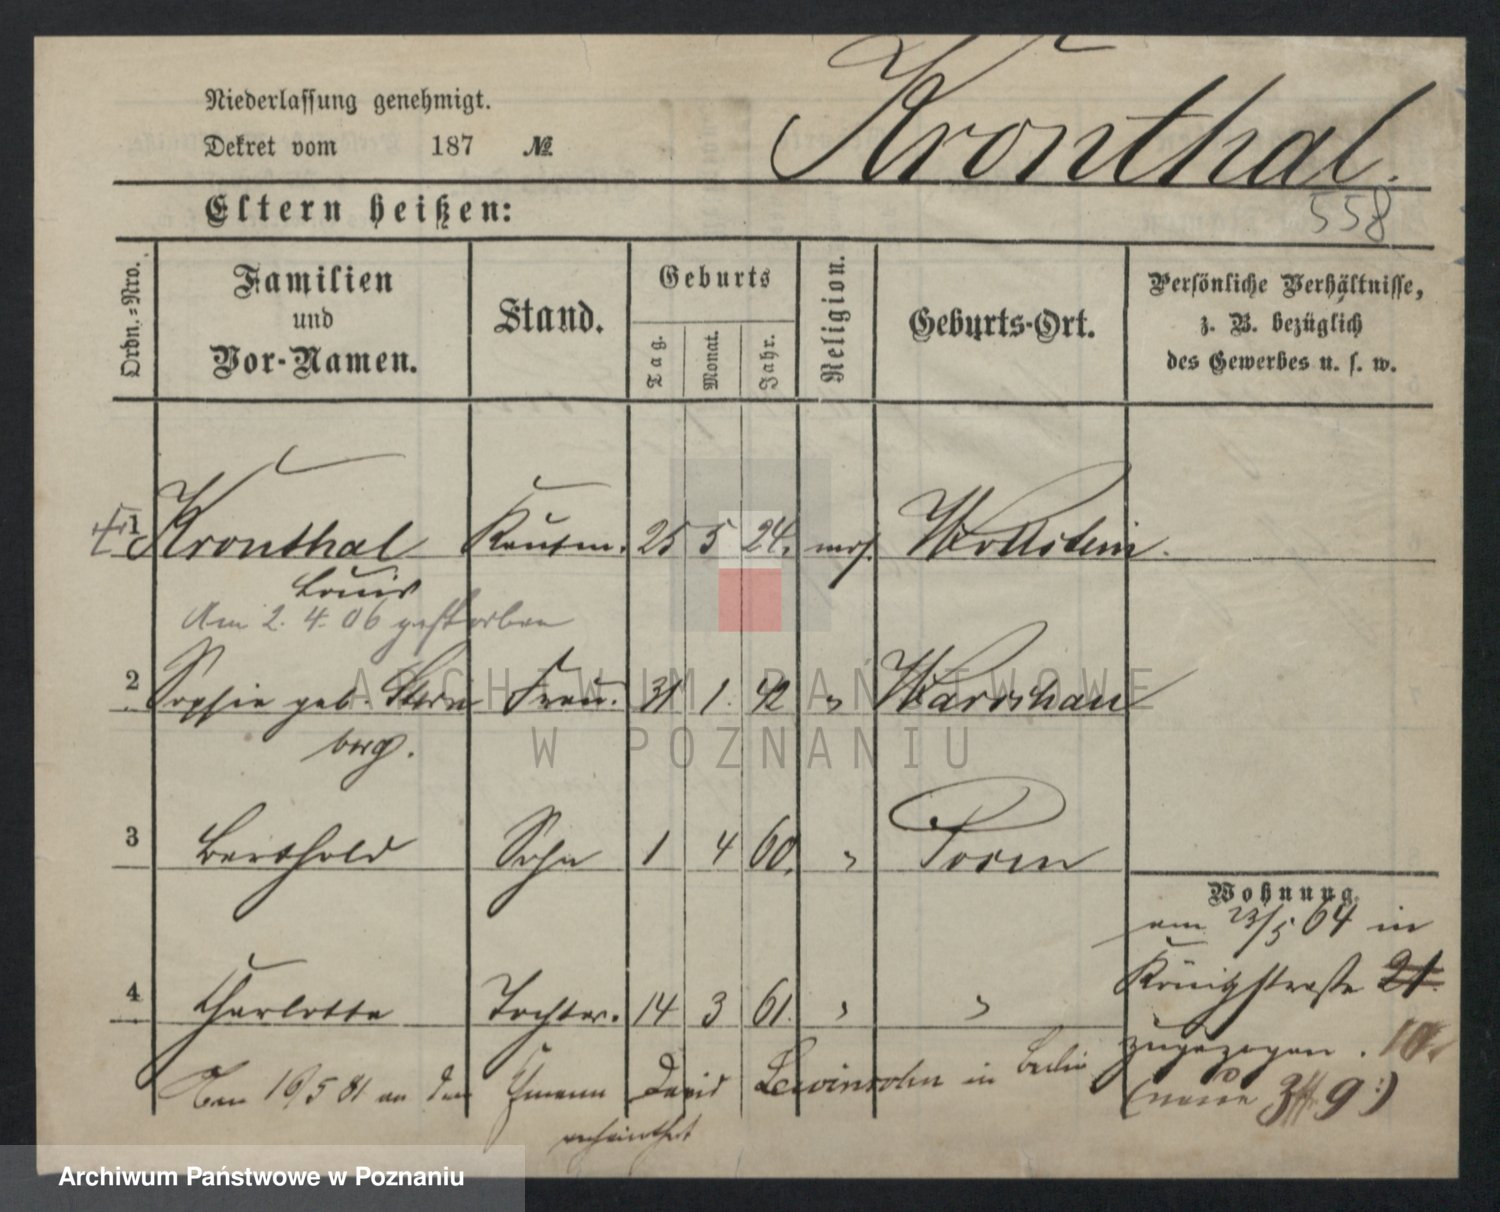 Niederlassung genehmigt.
Dekret vom 187 №
Kronthal.
558
Eltern heißen:
Ordn.-Nro.
Familien
und
Vor-Namen.
Stand.
Geburts
Tag.
Monat.
Jahr.
Religion.
Geburts-Ort.
Persönliche Verhältnisse,
z. B. bezüglich
des Gewerbes u. s. w.
1 Kronthal Kaufm. 25 5 24. mos. Wollstein.
Louis
Am 2. 4. 06 gestorben
2 Sophie geb. Stern Frau. 31 1. 42 " Warschau
berg.
3 Berthold Sohn 1 4 60. " Posen
Wohnung.
am 23/5 64 in
Königstraße 21.
zugezogen. 10.
(neue 9.)
4 Charlotte Tochter. 14 3 61. " "
16/5 81 an den David Lewinsohn in Berlin
verheirathet
ARCHIWUM PAŃSTWOWE
W POZNANIU
Archiwum Państwowe w Poznaniu